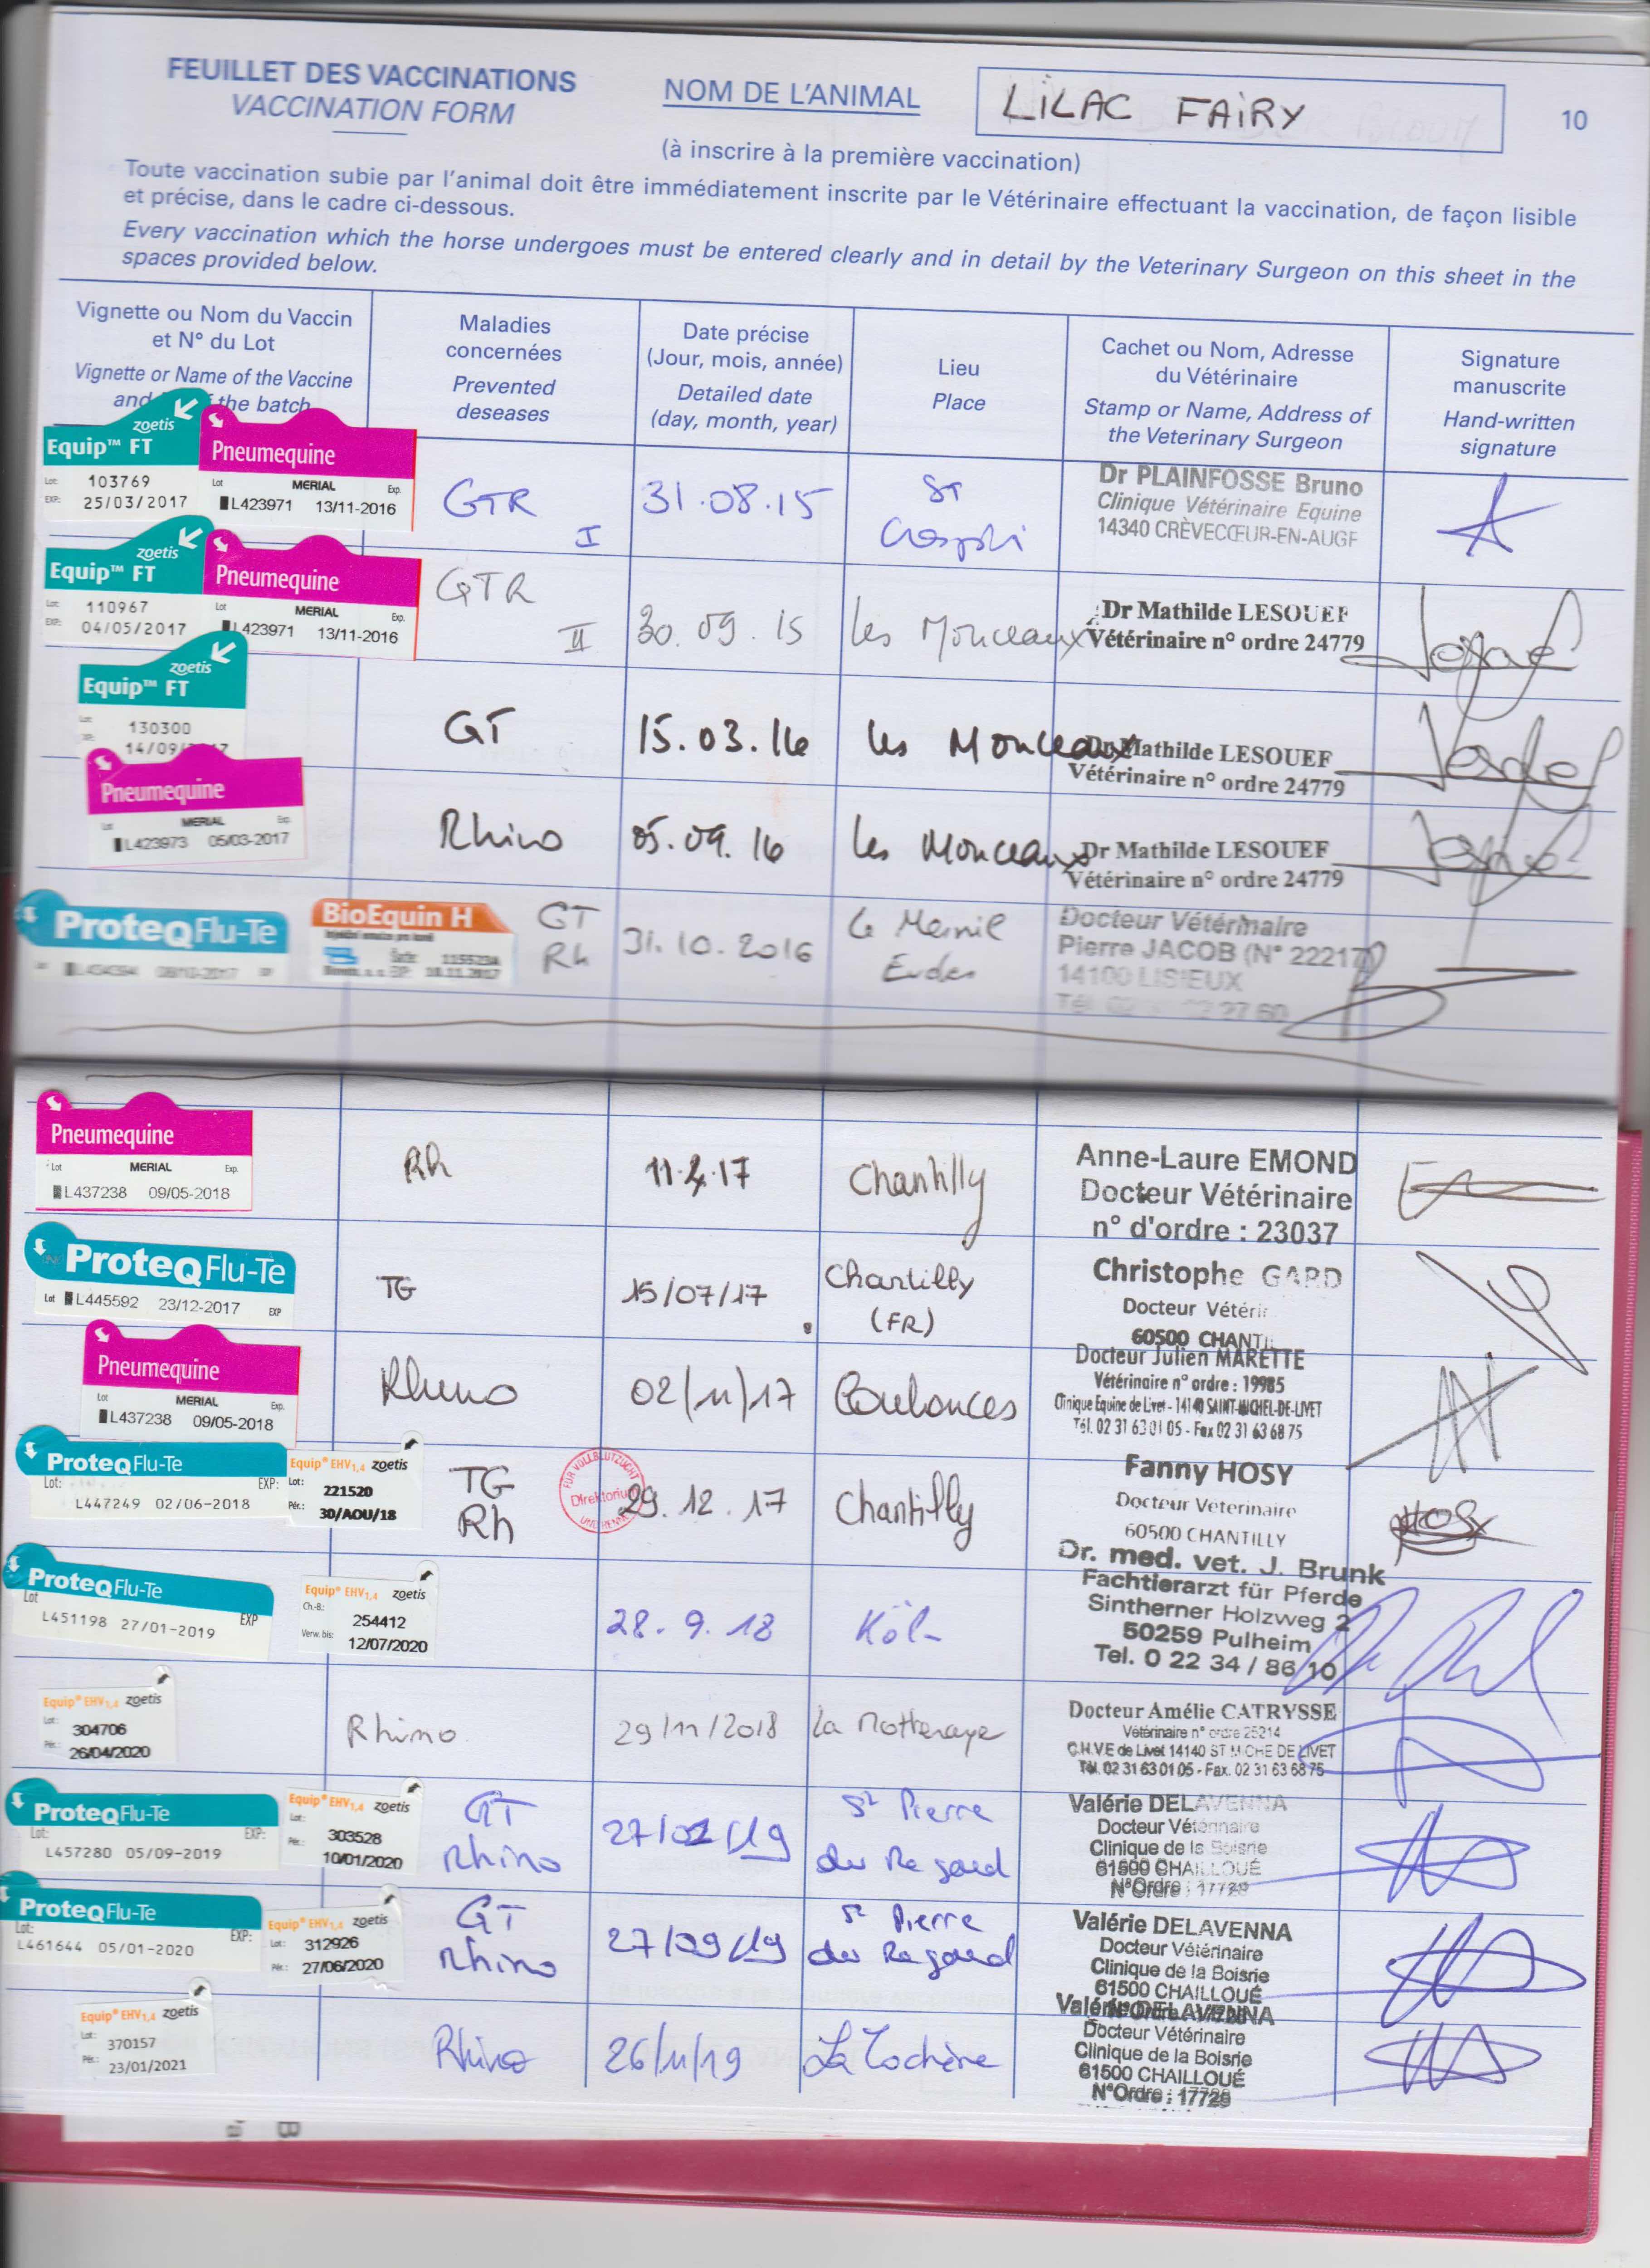 FEUILLET DES VACCINATIONS
VACCINATION FORM
NOM DE L'ANIMAL
LILAC FAIRY
10
(à inscrire à la première vaccination)
Toute vaccination subie par l'animal doit être immédiatement inscrite par le Vétérinaire effectuant la vaccination, de façon lisible
et précise, dans le cadre ci-dessous.
Every vaccination which the horse undergoes must be entered clearly and in detail by the Veterinary Surgeon on this sheet in the
spaces provided below.
Vignette ou Nom du Vaccin
et N° du Lot
Vignette or Name of the Vaccine
and the batch
Maladies
concernées
Prevented
deseases
Date précise
(Jour, mois, année)
Detailed date
(day, month, year)
Lieu
Place
Cachet ou Nom, Adresse
du Vétérinaire
Stamp or Name, Address of
the Veterinary Surgeon
Signature
manuscrite
Hand-written
signature
zoetis
Equip™ FT
Lot: 103769
EXP: 25/03/2017
Pneumequine
Lot MERIAL Exp.
L423971 13/11-2016
GTR
I
31.08.15
ST
Dr PLAINFOSSE Bruno
Clinique Vétérinaire Equine
14340 CRÈVECŒUR-EN-AUGE
zoetis
Equip™ FT
Lot: 110967
EXP: 04/05/2017
Pneumequine
Lot MERIAL Exp.
L423971 13/11-2016
GTR
II
30.09.15
Les Monceaux
Dr Mathilde LESOUEF
Vétérinaire n° ordre 24779
zoetis
Equip™ FT
130300
14/09/
GT
15.03.16
Les Monceaux
Dr Mathilde LESOUEF
Vétérinaire n° ordre 24779
Pneumequine
Lot MERIAL Exp.
L423973 05/03-2017
Rhino
05.09.16
Les Monceaux
Dr Mathilde LESOUEF
Vétérinaire n° ordre 24779
ProteqFlu-Te
BioEquin H
GT
Rh
31.10.2016
Le Mesnil
Eudes
Docteur Vétérinaire
Pierre JACOB (N° 22217)
14100 LISIEUX
Pneumequine
Lot MERIAL Exp.
L437238 09/05-2018
Rh
11.4.17
Chantilly
Anne-Laure EMOND
Docteur Vétérinaire
n° d'ordre : 23037
ProteqFlu-Te
Lot L445592 23/12-2017 EXP
TG
15/07/17
Chantilly
(FR)
Christophe GARD
Docteur Vétérin
60500 CHANTI
Pneumequine
Lot MERIAL Exp.
L437238 09/05-2018
Rhino
02/11/17
Coulonces
Docteur Julien MARETTE
Vétérinaire n° ordre : 19985
Clinique Equine de Livet - 14140 SAINT-MICHEL-DE-LIVET
Tél. 02 31 63 01 05 - Fax 02 31 63 68 75
ProteqFlu-Te
Lot: EXP:
L447249 02/06-2018
Equip® EHV1,4 zoetis
Lot: 221520
Pér.: 30/AOU/18
TG
Rh
FÜR VOLLBLUTZUCHT
Direktorium
UND RENNEN
29.12.17
Chantilly
Fanny HOSY
Docteur Veterinaire
60500 CHANTILLY
ProteqFlu-Te
Lot
L451198 27/01-2019 EXP
Equip® EHV1,4 zoetis
Ch.-B.: 254412
Verw. bis: 12/07/2020
28.9.18
Köln
Dr. med. vet. J. Brunk
Fachtierarzt für Pferde
Sintherner Holzweg 2
50259 Pulheim
Tel. 0 22 34 / 86 10
Equip® EHV1,4 zoetis
Lot: 304706
Pér.: 26/04/2020
Rhino
29/11/2018
La Motteraye
Docteur Amélie CATRYSSE
Vétérinaire n° ordre 25214
C.H.V.E de Livet 14140 ST MICHE DE LIVET
Tél. 02 31 63 01 05 - Fax. 02 31 63 68 75
ProteqFlu-Te
Lot: EXP:
L457280 05/09-2019
Equip® EHV1,4 zoetis
Lot: 303528
Pér.: 10/01/2020
GT
Rhino
27/02/19
St Pierre
du Regard
Valérie DELAVENNA
Docteur Vétérinaire
Clinique de la Boisrie
61500 CHAILLOUÉ
N°Ordre : 17729
ProteqFlu-Te
Lot: EXP:
L461644 05/01-2020
Equip® EHV1,4 zoetis
Lot: 312926
Pér.: 27/06/2020
GT
Rhino
27/09/19
St Pierre
du Regard
Valérie DELAVENNA
Docteur Vétérinaire
Clinique de la Boisrie
61500 CHAILLOUÉ
Equip® EHV1,4 zoetis
Lot: 370157
Pér.: 23/01/2021
Rhino
26/11/19
La Cochère
Valérie DELAVENNA
Docteur Vétérinaire
Clinique de la Boisrie
61500 CHAILLOUÉ
N°Ordre : 17729